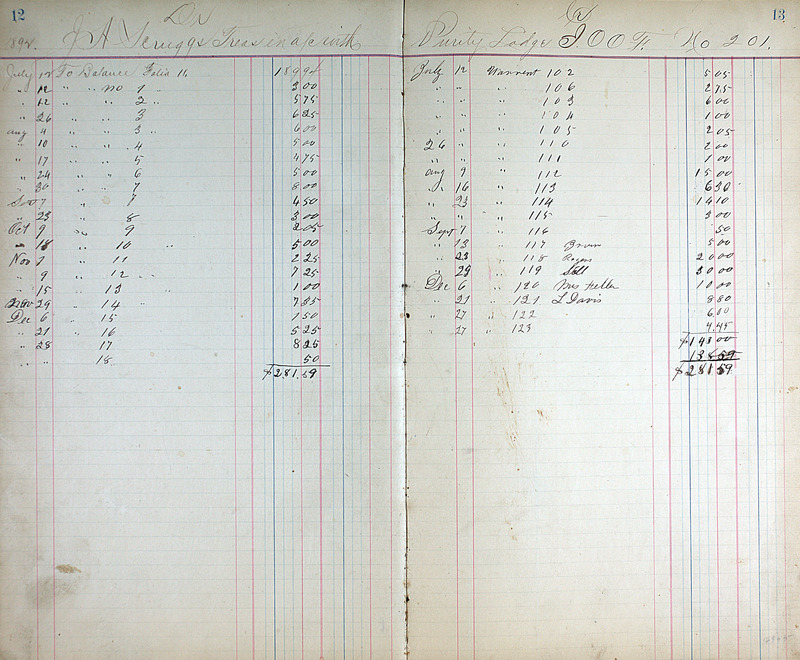 12
Dr
J A Scruggs Treas in a/c with
July 12 To Balance Folio 11 189 94
" 12 " " no 1 " 3 00
" 12 " " 2 " 5 75
" 26 " " 3 6 25
Aug 4 " " 3 " 6 00
" 10 " 4 5 00
" 17 " " 5 4 75
" 24 " " 6 5 00
" 30 " " 7 8 00
7 " 4 50
" 23 " 8 3 00
Oct 9 " 9
" 18 " 10 " 5 00
Nov 2 " 11 2 25
" 9 " 12 " " 7 25
" 15 " 13 " 1 00
29 " 14 "
Dec 6 " 15 1 50
" 21 " 16 5 25
" 28 17 8 25
" " 18 50
$281.59
13
Cr
Purity Lodge I.O.O.F. No 201.
July 12 Warrent 102 5 05
" " " 106 2 75
" " " 103 6 00
" " " 104 1 00
" " " 105 2 05
26 " " 110 2 00
" " " 111 1 00
Aug 9 " 112 15 00
" 16 " 113 6 30
" 23 " 114 14 10
" " " 115 3 00
Sept 7 " 116 50
" 13 " 117 5 00
" 23 " 118 Rogers 20 00
" 29 " 119 30 00
Dec 6 " 120 10 00
" 21 " 121 L Davis 8 80
" 27 " 122
" 27 " 123 4.45
$143 00
138 59
$281 59